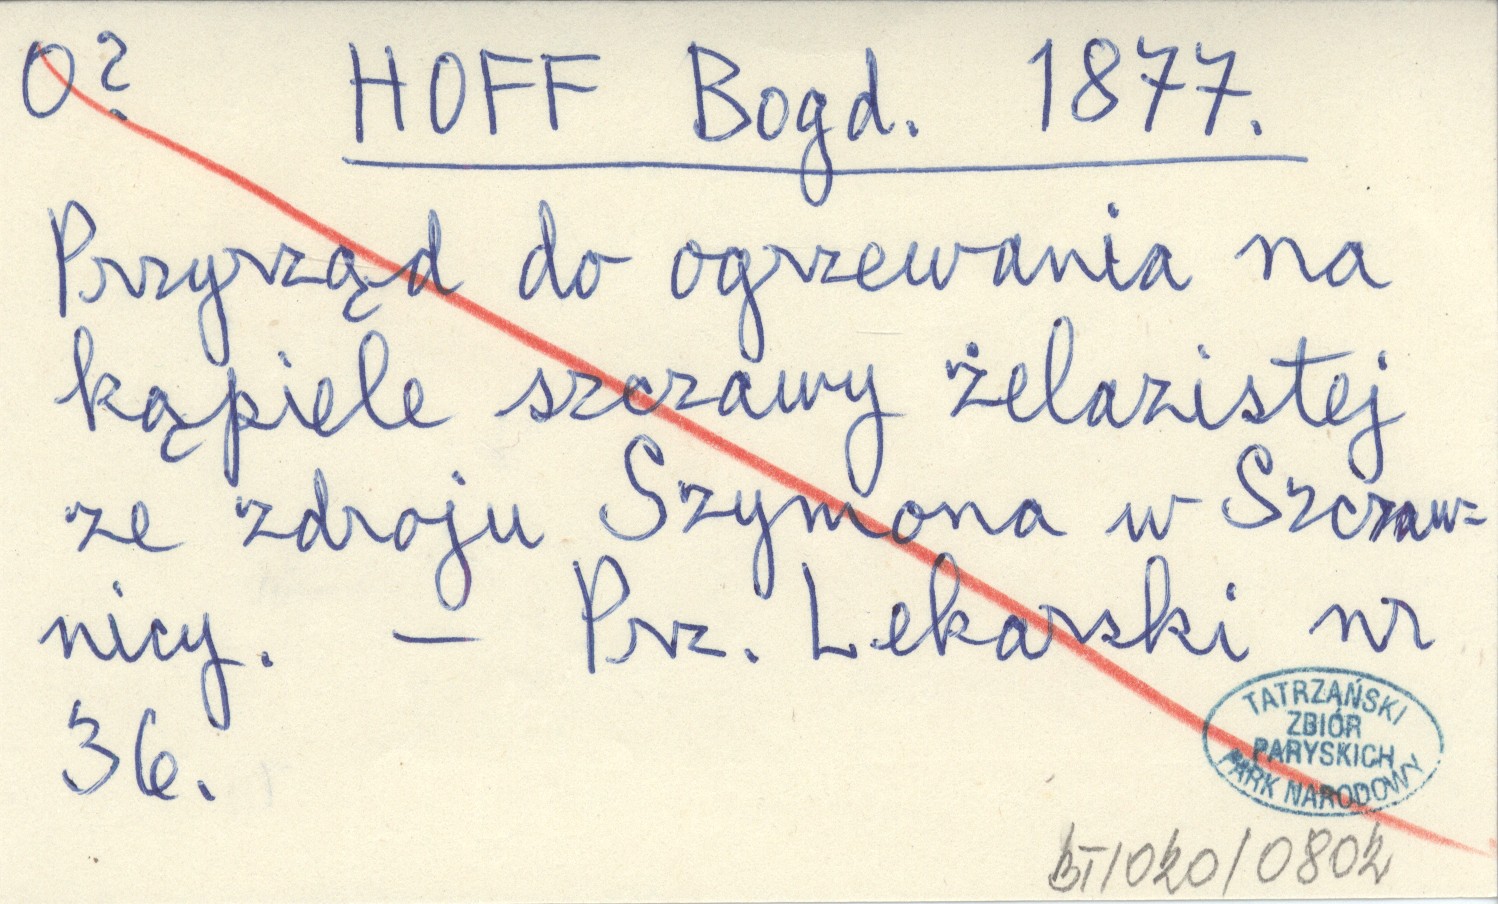 O? HOFF Bogd. 1877.
Przyrząd do ogrzewania na
kąpiele szczawy żelazistej
ze zdroju Szymona w Szczaw=
nicy. — Prz. Lekarski nr
36.
TATRZAŃSKI
ZBIÓR
PARYSKICH
PARK NARODOWY
BT/020/0802